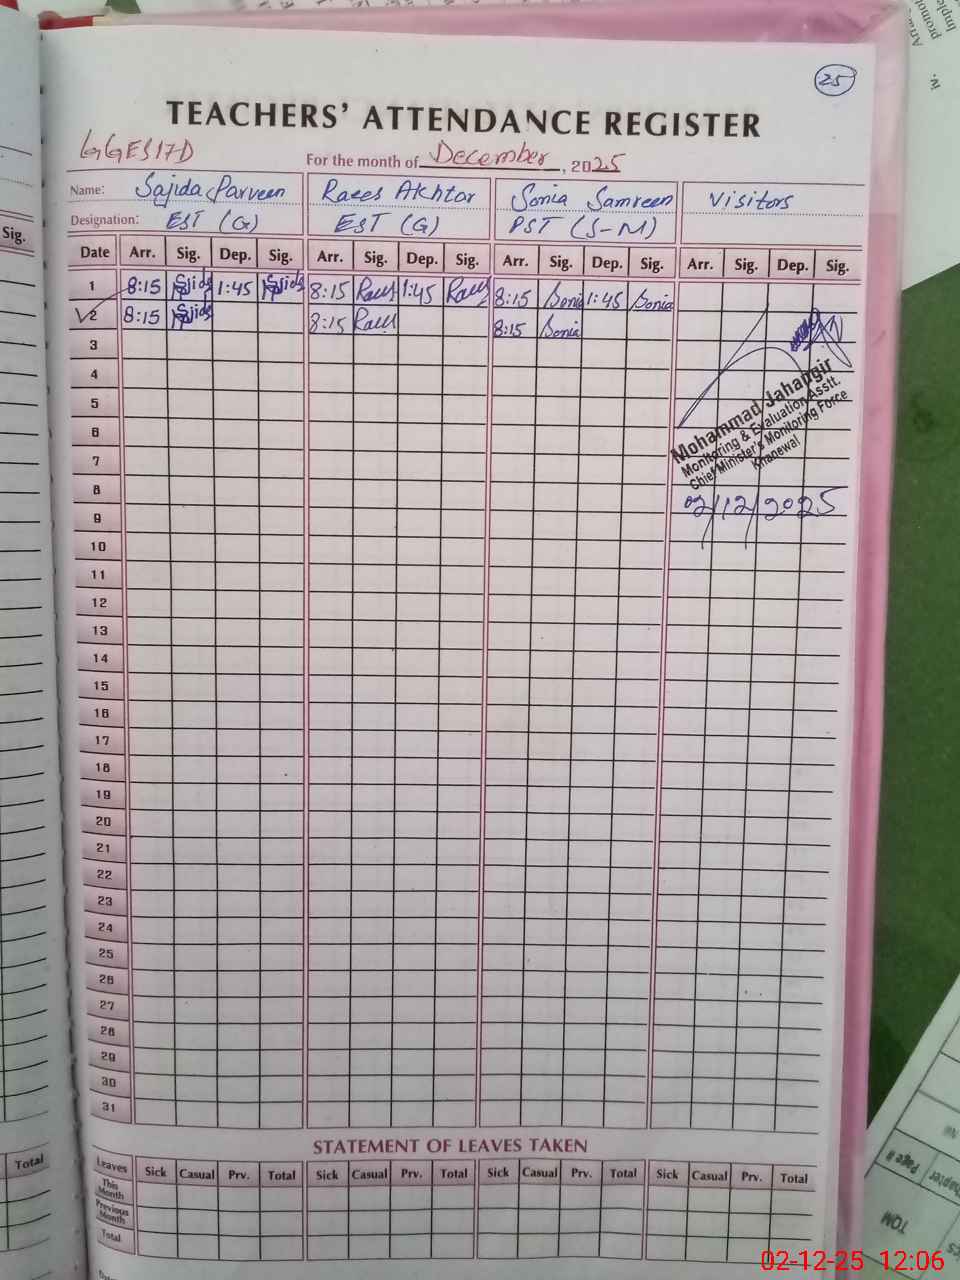 25
TEACHERS' ATTENDANCE REGISTER
GGES 17D
For the month of December, 2025
Name: Sajida Parveen Raees Akhtar Sonia Samreen Visitors
Designation: EST (G) EST (G) PST (S-M)
Date Arr. Sig. Dep. Sig. Arr. Sig. Dep. Sig. Arr. Sig. Dep. Sig. Arr. Sig. Dep. Sig.
1 8:15 Sajida 1:45 Sajida 8:15 Raees 1:45 Raees 8:15 Sonia 1:45 Sonia
2 8:15 Sajida 8:15 Raees 8:15 Sonia
3
4
5
6
7
8
9
10
11
12
13
14
15
16
17
18
19
20
21
22
23
24
25
26
27
28
29
30
31
Mohammad Jahangir
Monitoring & Evaluation Asstt.
Chief Minister's Monitoring Force
Khanewal
02/12/2025
STATEMENT OF LEAVES TAKEN
Leaves Sick Casual Prv. Total Sick Casual Prv. Total Sick Casual Prv. Total Sick Casual Prv. Total
This Month
Previous Month
Total
Sig.
Total
iv.
Page #
Chapter
TOM
02-12-25 12:06